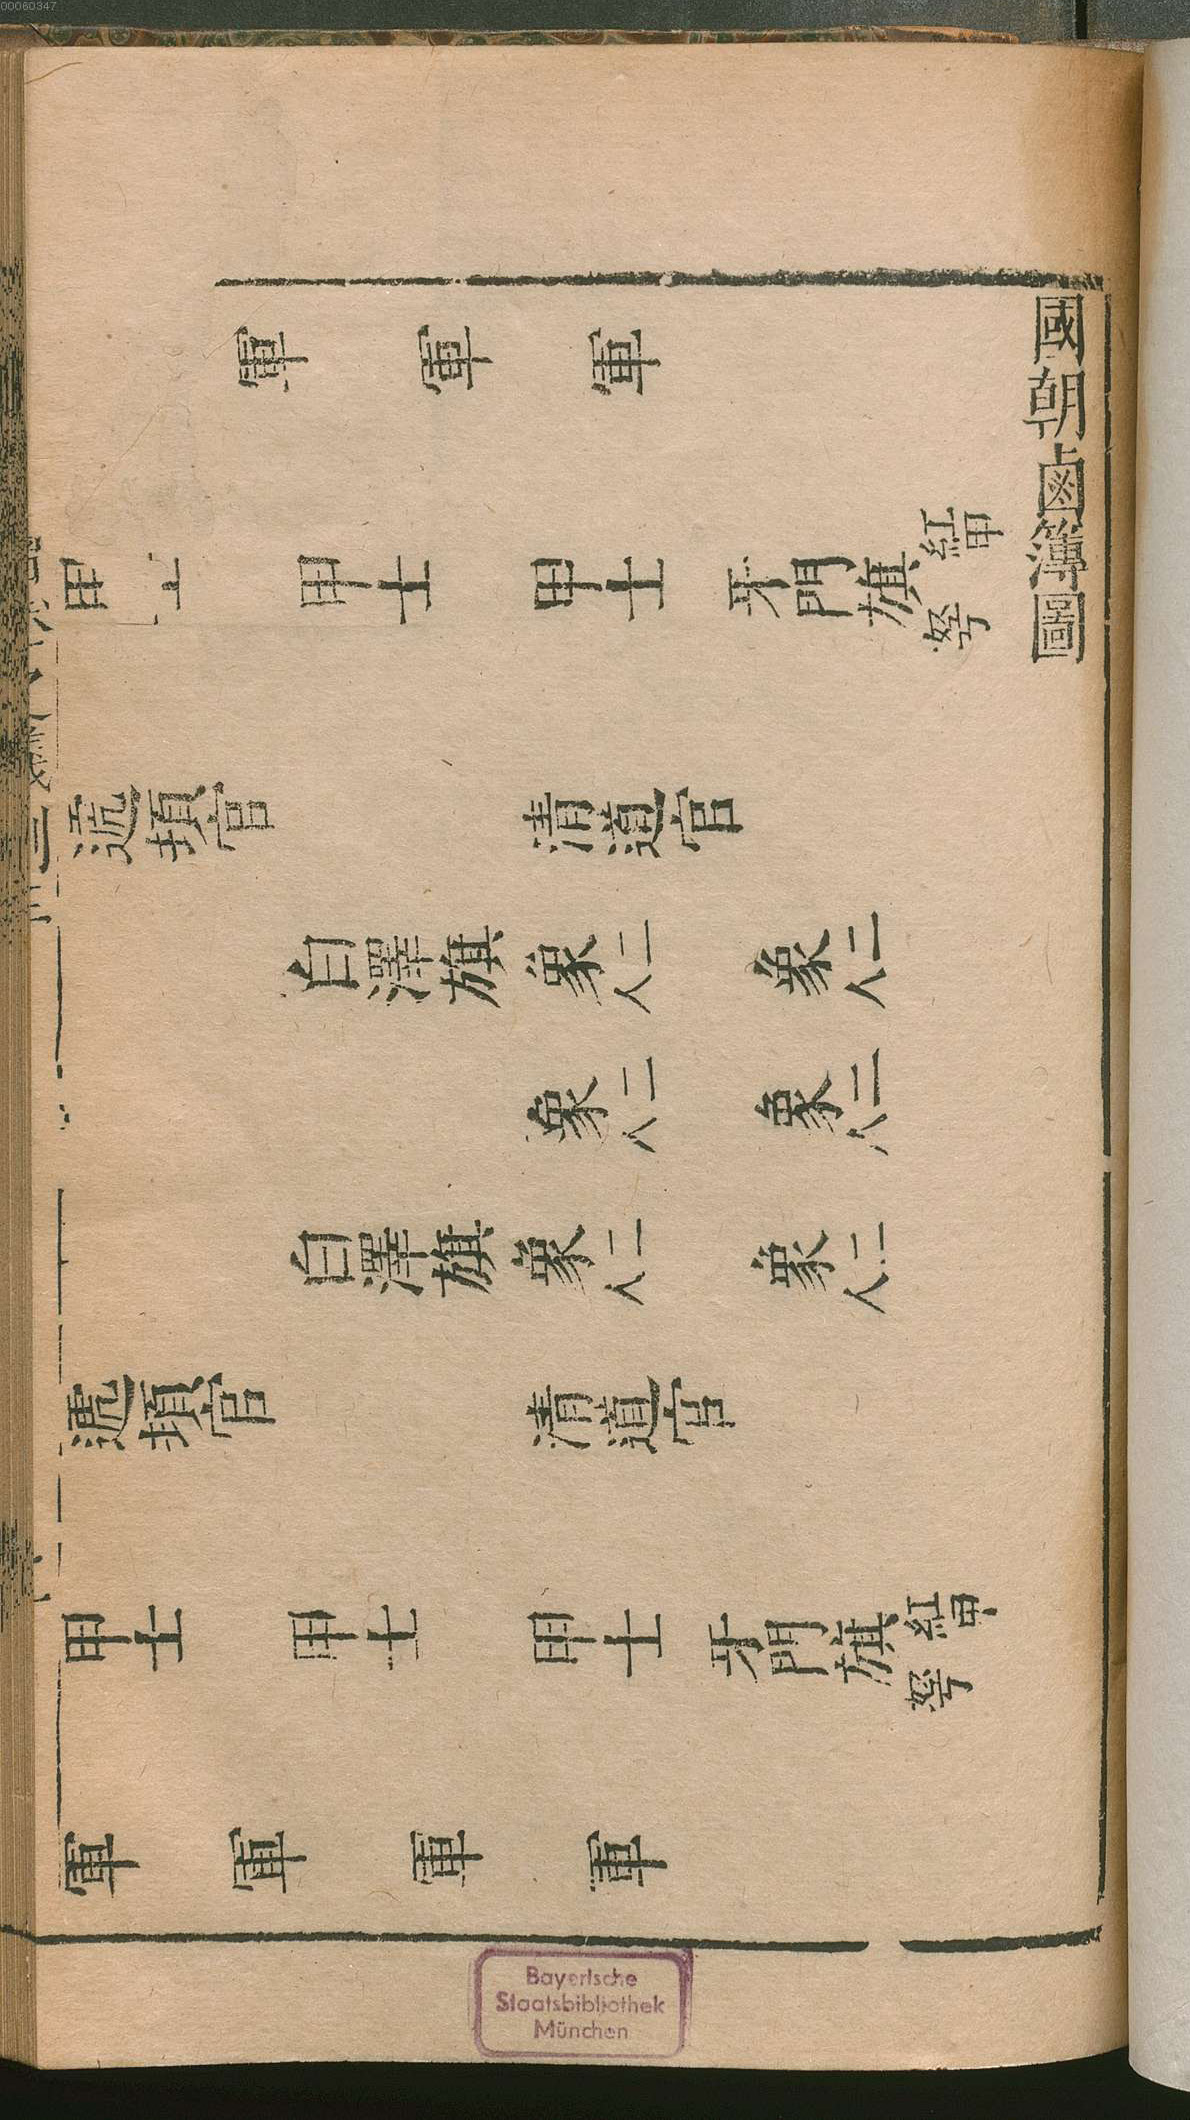 00060347
國朝鹵簿圖
軍 軍 軍
甲士 甲士 甲士 牙門旗 紅甲弩
官 清道官
白澤旗 象二人 象二人
象二人 象二人
白澤旗 象二人 象二人
官 清道官
甲士 甲士 甲士 牙門旗 紅甲弩
軍 軍 軍 軍
Bayerische
Staatsbibliothek
München